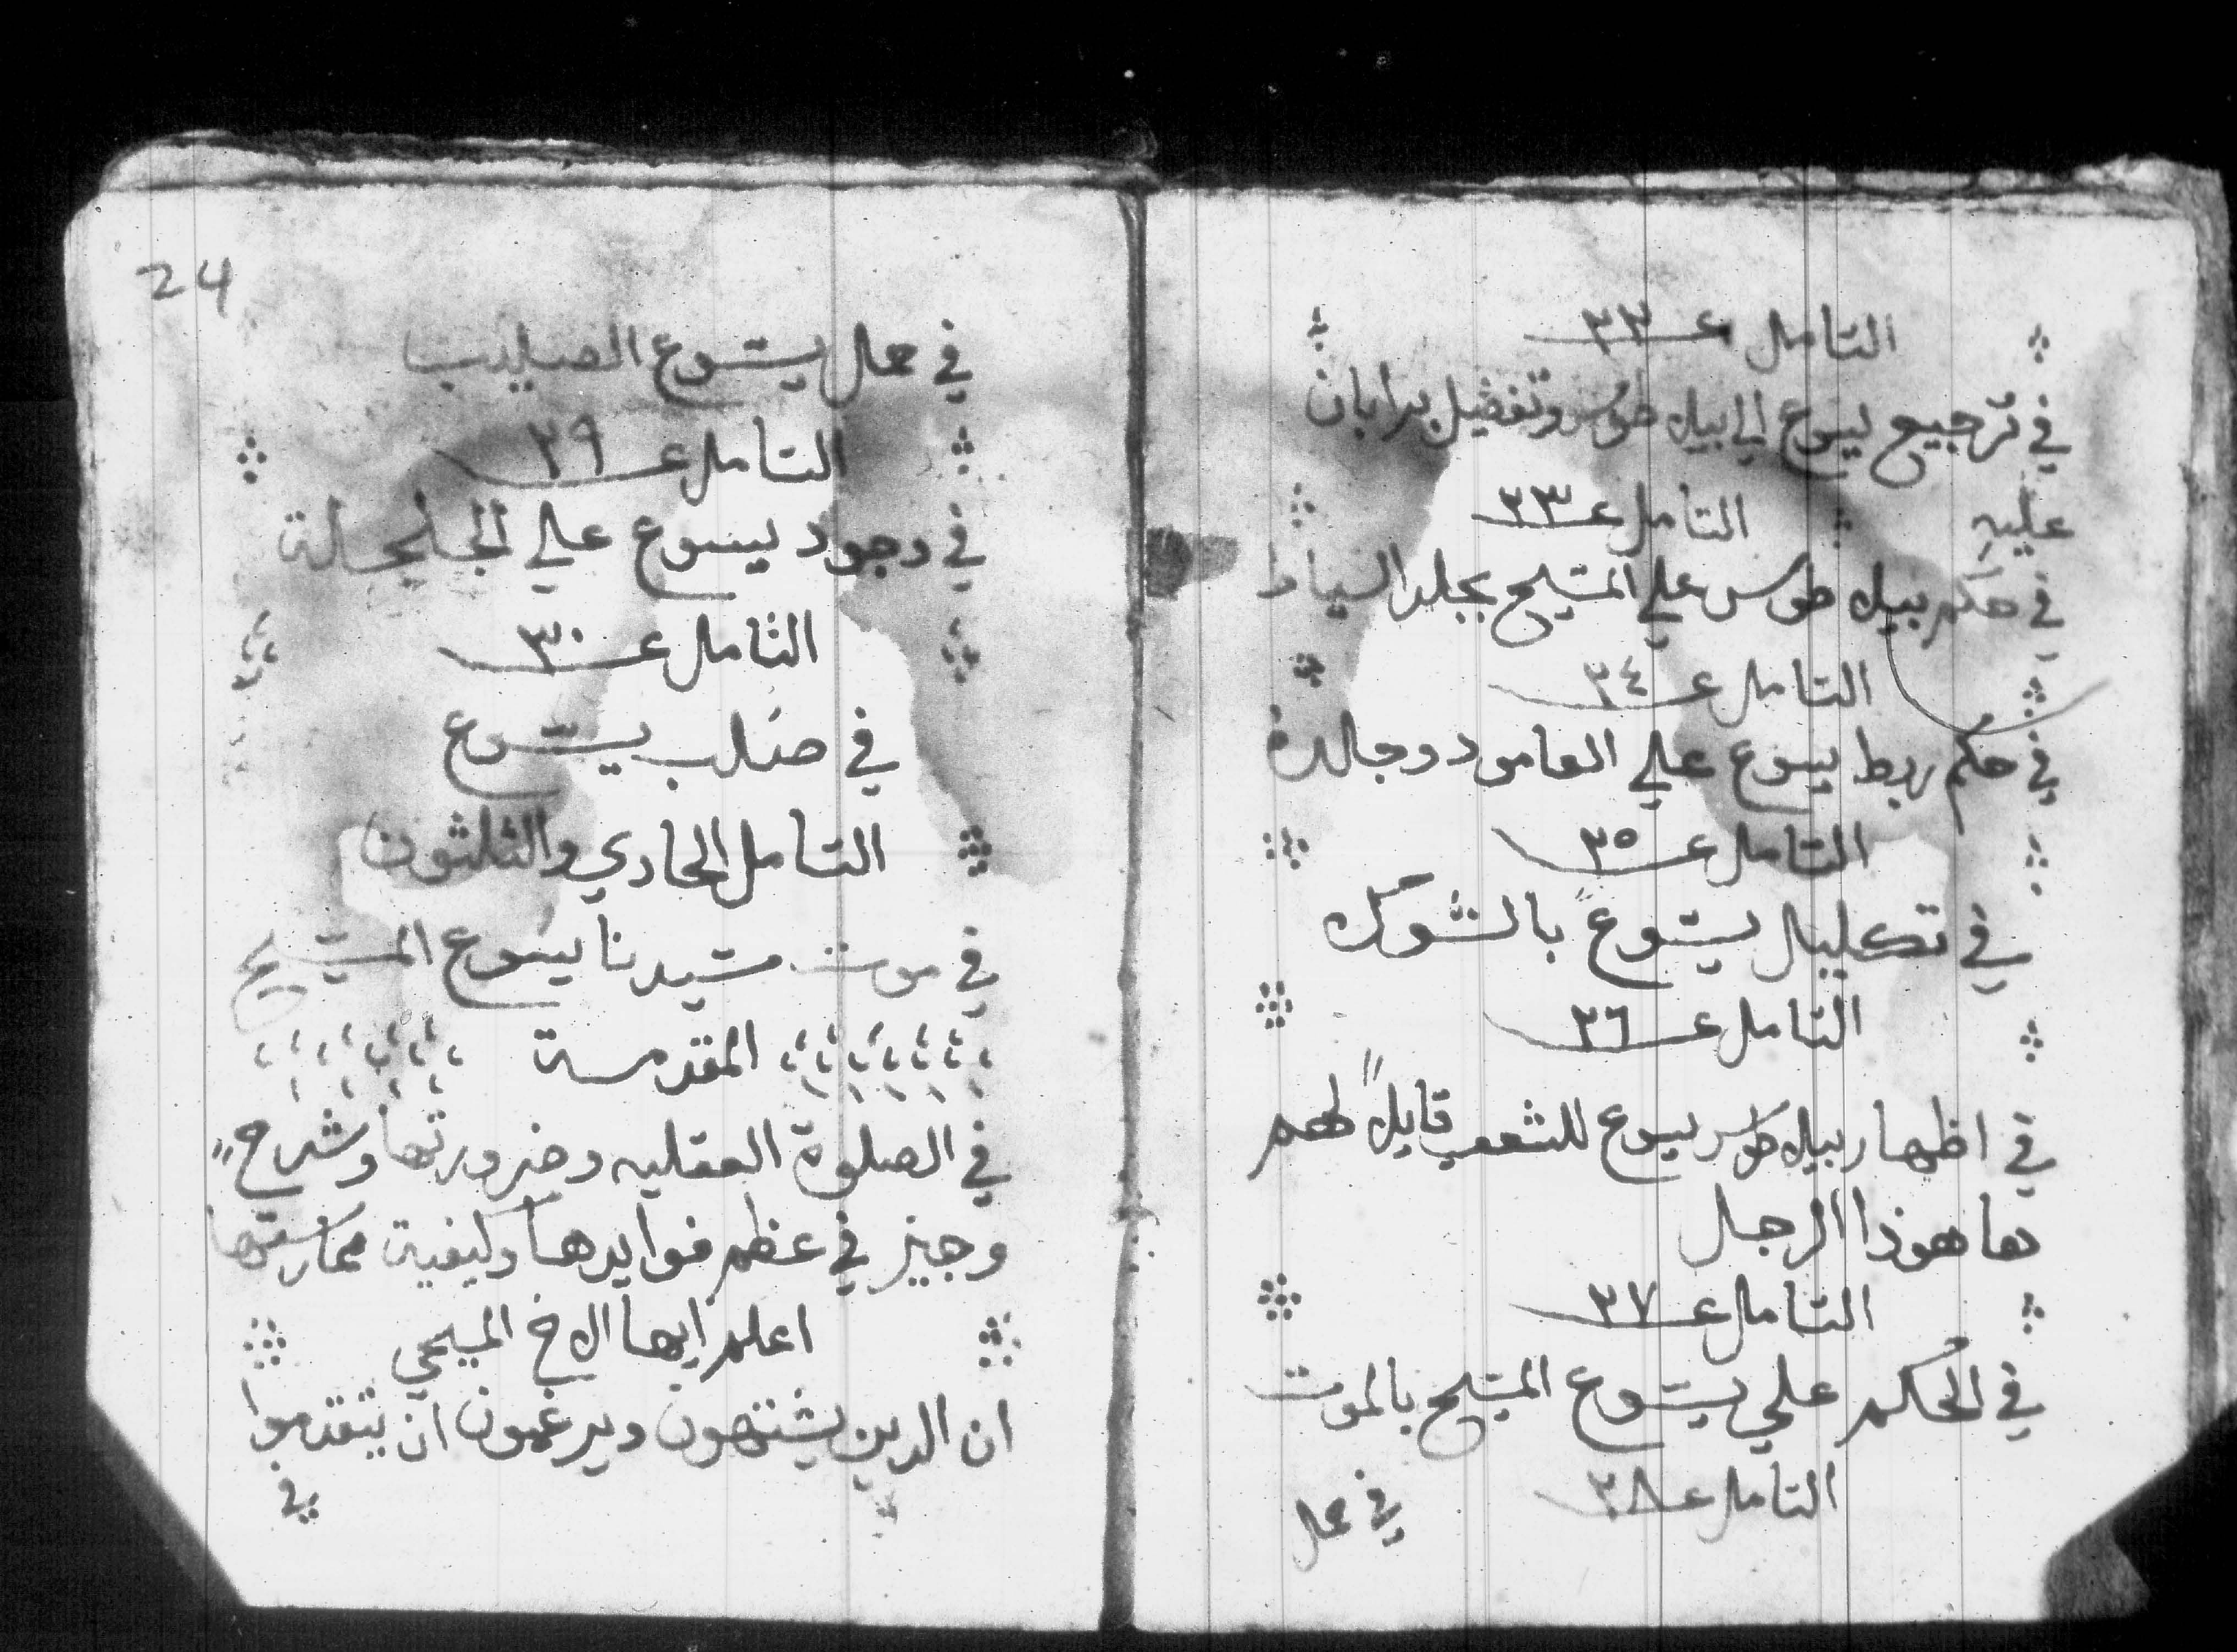 التامل عـ ٢٢
في ترجيع يسوع الي بيلاطوس وتفضيل برابان
عليه التامل عـ ٢٣
في حكم بيلاطوس علي المسيح بجلد السياط
التامل عـ ٢٤
في حكم ربط يسوع علي العامود وجالده
التامل عـ ٢٥
في تكليل يسوع بالشوك
التامل عـ ٢٦
في اظهار بيلاطوس يسوع للشعب قايلاً لهم
ها هوذا الرجل
التامل عـ ٢٧
في الحكم علي يسوع المسيح بالموت
التامل عـ ٢٨
في حمل
24
في حمل يسوع الصليب
التامل عـ ٢٩
في وجود يسوع علي الجلجلة
التامل عـ ٣٠
في صلب يسوع
التامل الحادي والثلثون
في موت سيدنا يسوع المسيح
المقدمة
في الصلوة العقليه وضرورتها وشرح
وجيز في عظم فوايدها وكيفية ممارستها
اعلم ايها الاخ المسيحي
ان الدين يشتهون ويرغبون ان يتقدموا
في